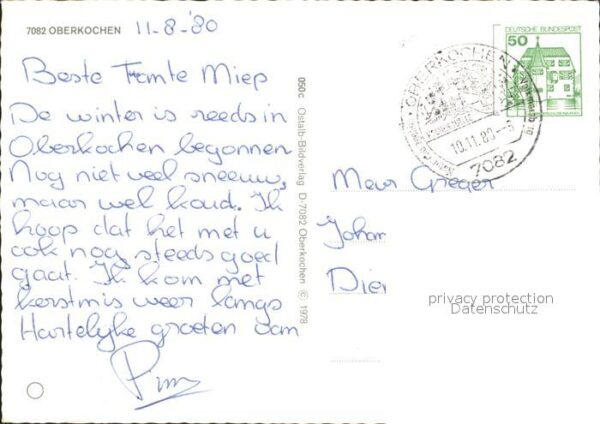 7082 OBERKOCHEN 11-8-'80
Beste Tante Miep
De winter is reeds in
Oberkochen begonnen
Nog niet veel sneeuw,
maar wel koud. Ik
hoop dat het met u
ook nog steeds goed
gaat. Ik kom met
kerstmis weer langs
Hartelijke groeten van
Pim
050c Ostalb-Bildverlag D-7082 Oberkochen © 1978
DEUTSCHE BUNDESPOST
50
OBERKOCHEN
10.11.80
7082
Mevr Greger
Johan
Dier
privacy protection
Datenschutz